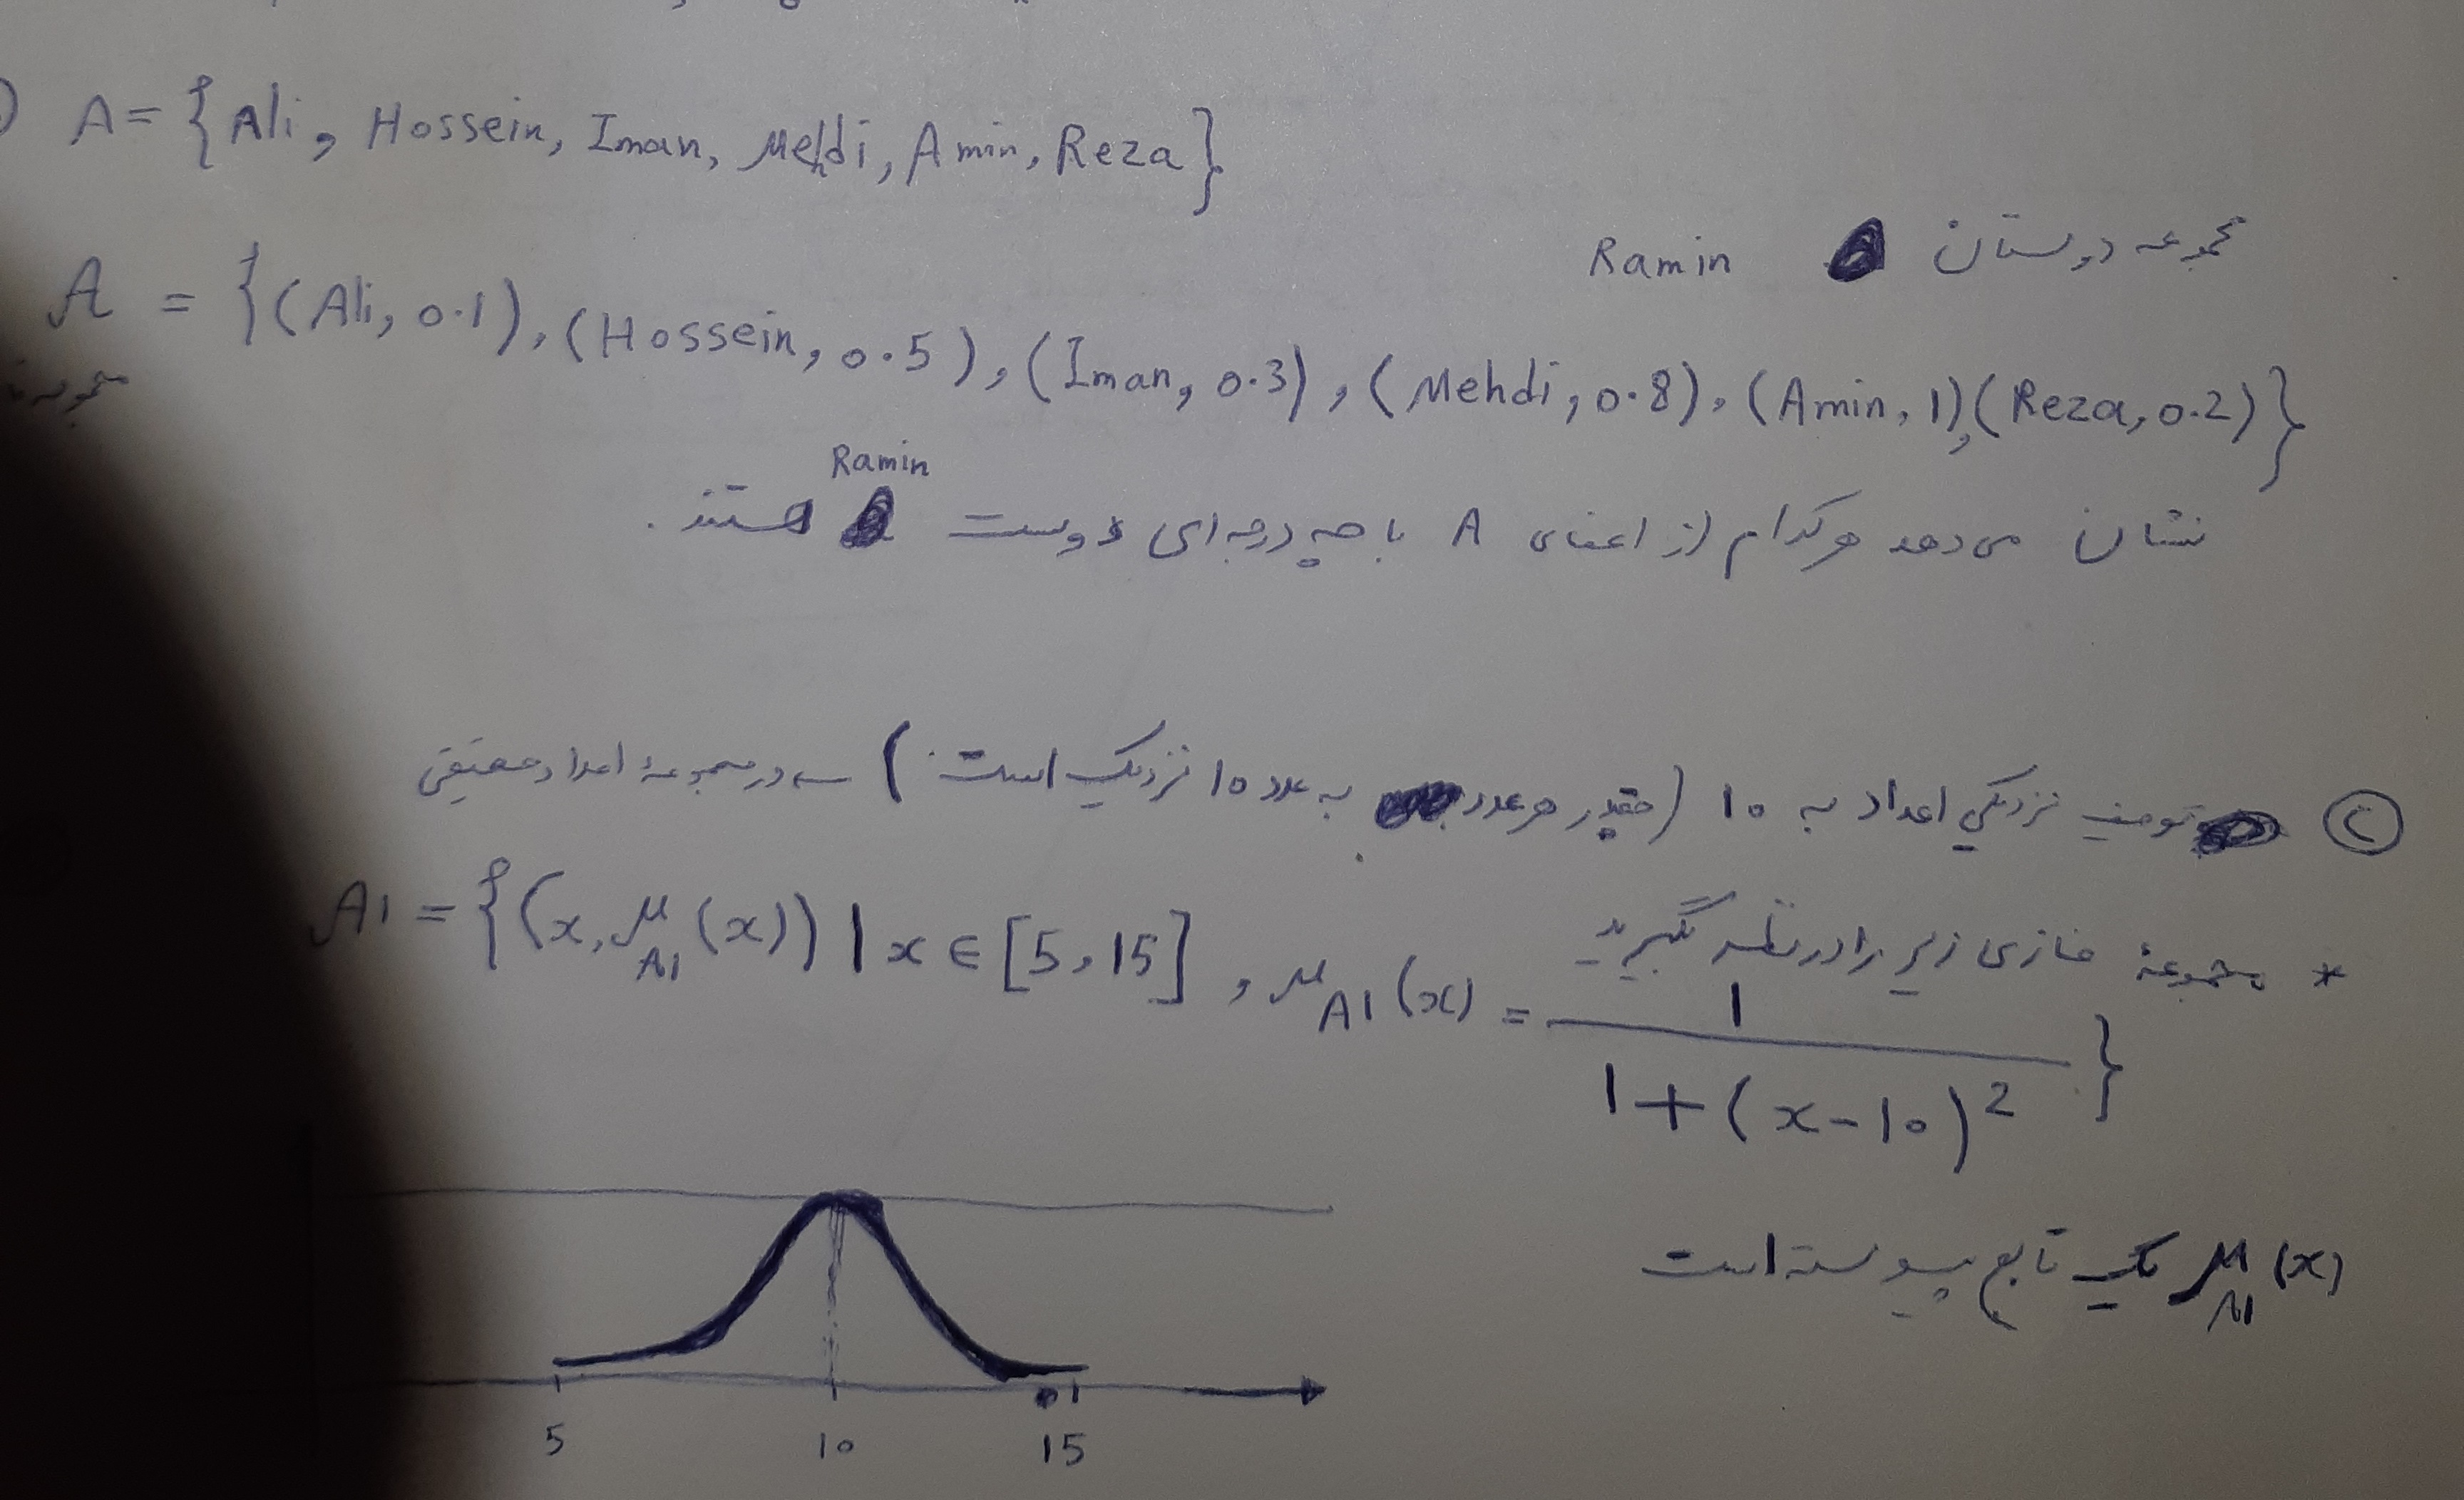 A = {Ali, Hossein, Iman, Mehdi, Amin, Reza}
مجموعه دوستان Ramin
A = {(Ali, 0.1), (Hossein, 0.5), (Iman, 0.3), (Mehdi, 0.8), (Amin, 1), (Reza, 0.2)}
Ramin
نشان می‌دهد هرکدام از اعضای A با چه درجه‌ای دوست هستند.
توصیف نزدیکی اعداد به 10 (چقدر هر عدد به عدد 10 نزدیک است.) در مجموعهٔ اعداد حقیقی
* مجموعهٔ فازی زیر را در نظر بگیرید
A1 = {(x, μ_A1(x)) | x ∈ [5, 15], μ_A1(x) = 1 / (1 + (x-10)²)}
μ_A1(x) یک تابع پیوسته است
5 10 15